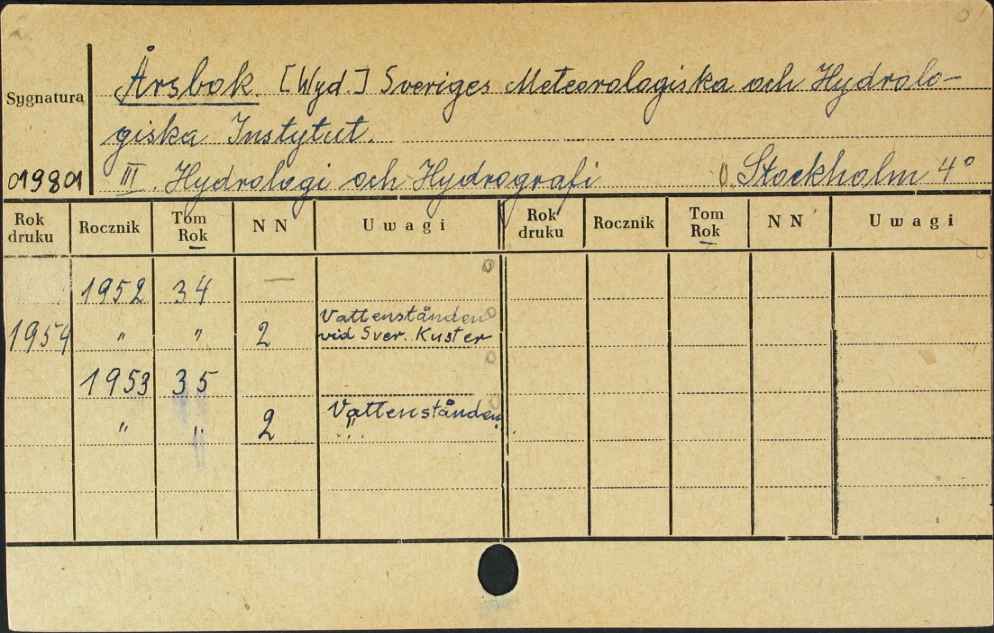 Årsbok. [Wyd.] Sveriges Meteorologiska och Hydrolo-
Sygnatura
giska Instytut.
019801 III. Hydrologi och Hydrografi Stockholm 4°
Rok druku Rocznik Tom Rok NN Uwagi Rok druku Rocznik Tom Rok NN Uwagi
1952 34 —
1954 " " 2 Vattenstånden vid Sver. Kuster
1953 35
" " 2 Vattenstånden "